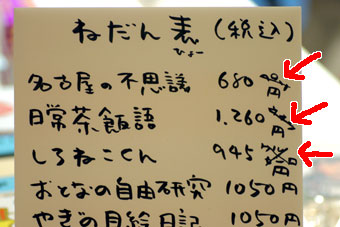 ねだん表(税込)
ひょー
名古屋の不思議 680円
日常茶飯語 1.260円
しろねこくん 945円
おとなの自由研究 1050円
やぎの月絵日記 1050円